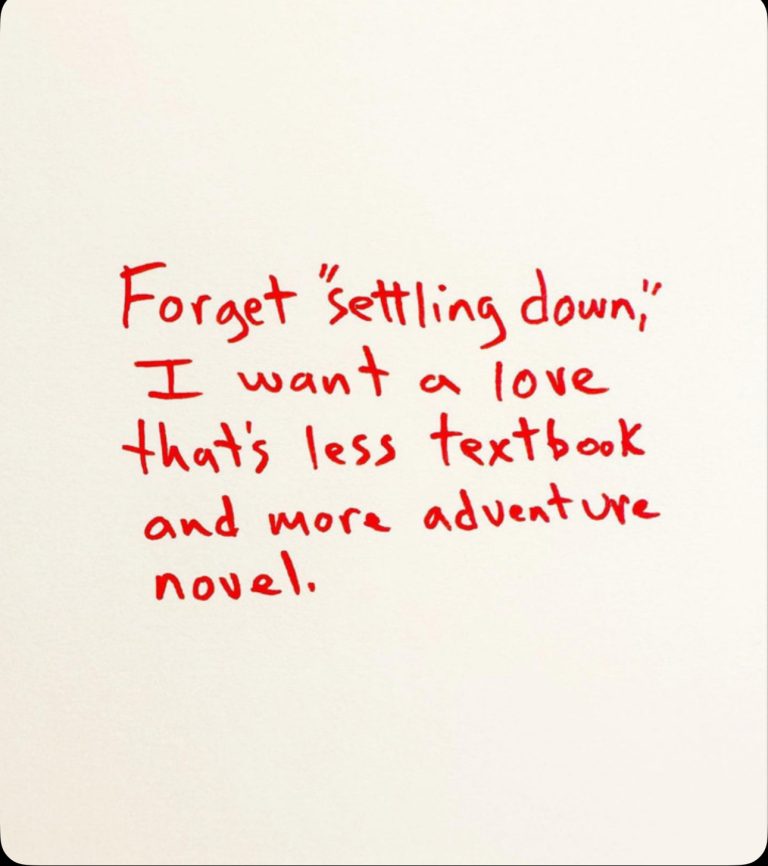 Forget "settling down,"
I want a love
that's less textbook
and more adventure
novel.